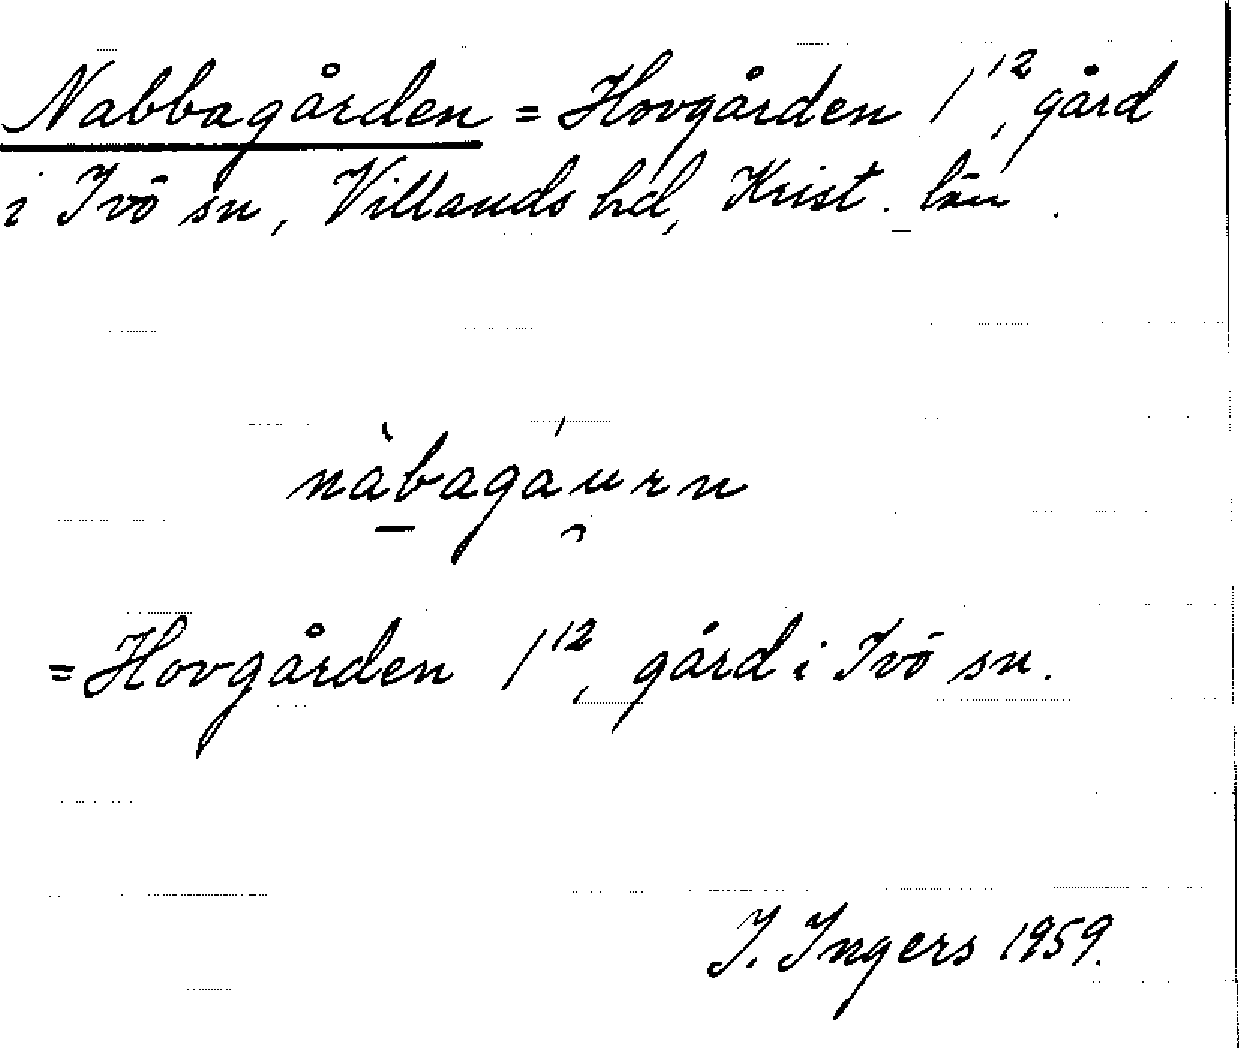 Nabbagården = Hovgården 1¹², gård
i Ivö sn, Villands hd, Krist. län.
nàbagáu̯rn
= Hovgården 1¹², gård i Ivö sn.
I. Ingers 1959.